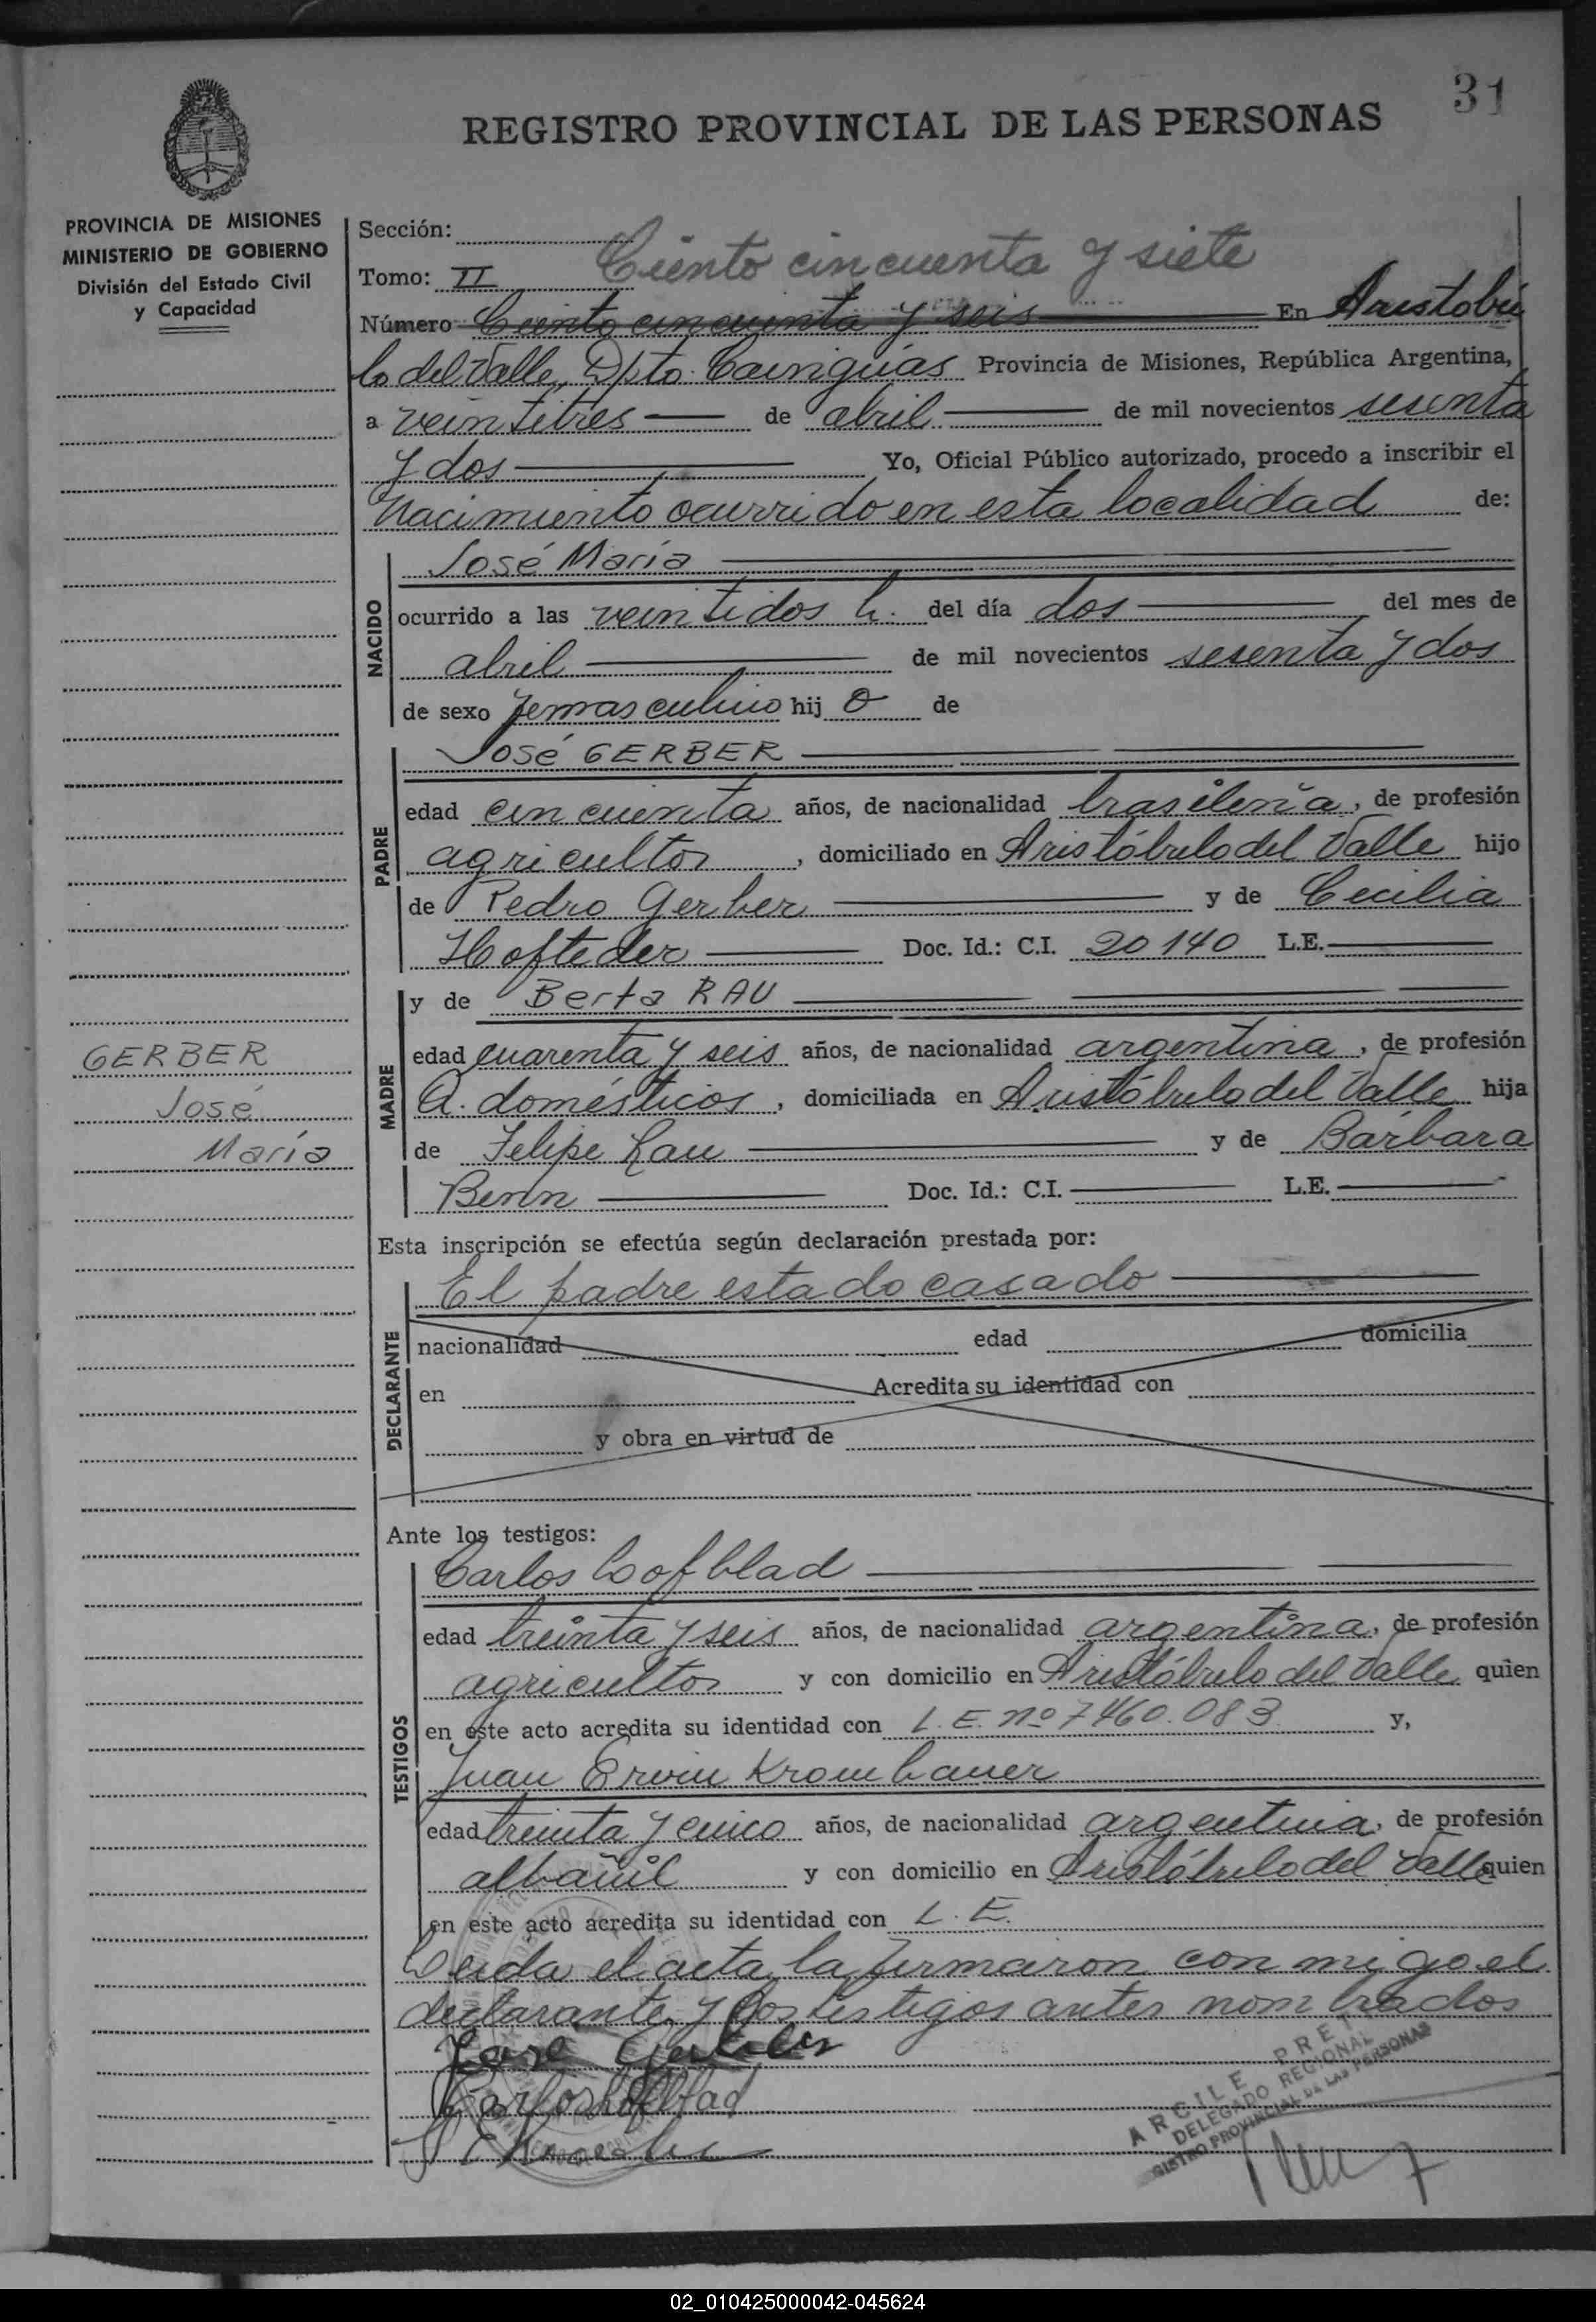 31
REGISTRO PROVINCIAL DE LAS PERSONAS
PROVINCIA DE MISIONES
MINISTERIO DE GOBIERNO
División del Estado Civil
y Capacidad
Sección:
Ciento cincuenta y siete
Tomo: II
Número Ciento cincuenta y seis En Aristóbu
lo del Valle, Dpto. Cainguás Provincia de Misiones, República Argentina,
a veintitres de abril de mil novecientos sesenta
y dos Yo, Oficial Público autorizado, procedo a inscribir el
Nacimiento ocurrido en esta localidad de:
NACIDO
José María
ocurrido a las veintidos h. del día dos del mes de
abril de mil novecientos sesenta y dos
de sexo femasculino hij o de
PADRE
José GERBER
edad cincuenta años, de nacionalidad brasileña, de profesión
agricultor, domiciliado en Aristóbulo del Valle hijo
de Pedro Gerber y de Cecilia
Hofteder Doc. Id.: C.I. 20140 L.E.
MADRE
y de Berta RAU
edad cuarenta y seis años, de nacionalidad argentina, de profesión
Q. domésticos, domiciliada en Aristóbulo del Valle hija
de Felipe Rau y de Bárbara
Benn Doc. Id.: C.I. L.E.
GERBER
José
María
Esta inscripción se efectúa según declaración prestada por:
DECLARANTE
El padre estado casado
nacionalidad edad domicilia
en Acredita su identidad con
y obra en virtud de
Ante los testigos:
TESTIGOS
Carlos Lofblad
edad treinta y seis años, de nacionalidad argentina, de profesión
agricultor y con domicilio en Aristóbulo del Valle quien
en este acto acredita su identidad con L.E. nº 7460.083 y,
Juan Ervin Krombauer
edad treinta y cinco años, de nacionalidad argentina, de profesión
albañil y con domicilio en Aristóbulo del Valle quien
en este acto acredita su identidad con L.E.
Leida el acta, la firmaron conmigo el
declarante y los testigos antes nombrados
José Gerber
Carlos Lofblad
ARCILE PRET
DELEGADO REGIONAL
GISTRO PROVINCIAL DE LAS PERSONAS
02_010425000042-045624